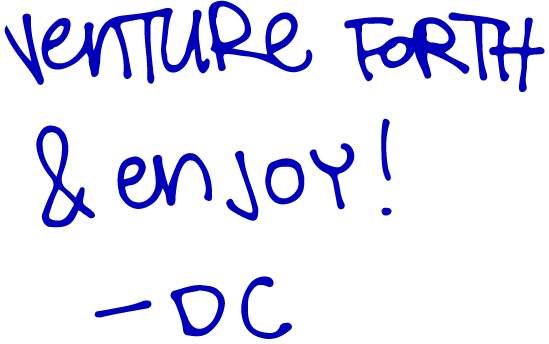 Venture Forth
& enjoy!
— DC